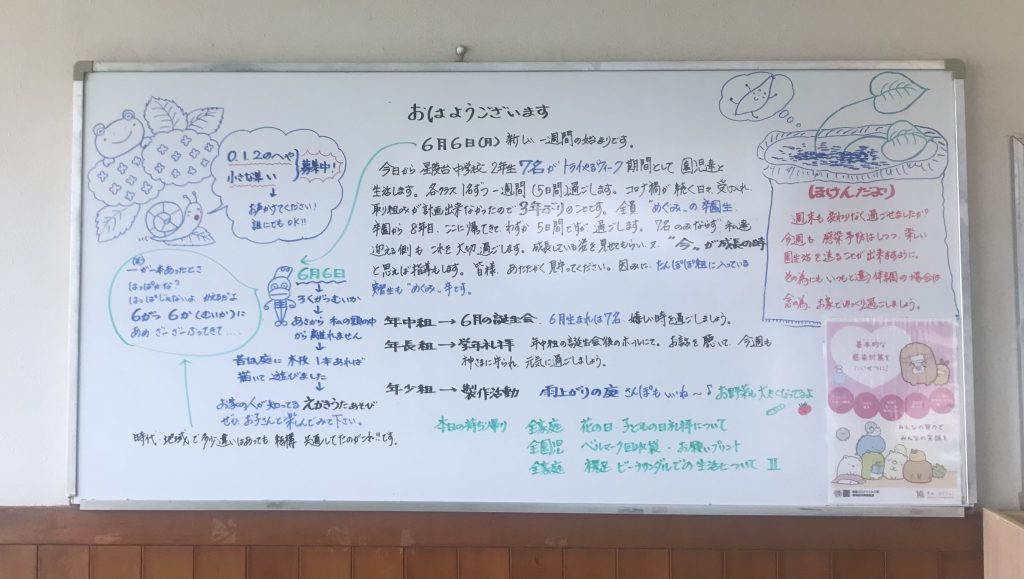 おはようございます
6月6日(月) 新しい一週間の始まりです。
今日から 星陵台中学校 2年生 7名が トライやるウィーク 期間として 園児達と
生活します。各クラス 1名ずつ 一週間(5日間)過ごします。コロナ禍が続く日々で
取り組みが計画出来なかったので 3年ぶりのことです。全員 "めぐみ"の卒園生
卒園から 8年目、ここに帰ってきて わずか 5日間ですが 過ごします。7名のみなさず 私達
迎える側も これを大切に過ごします。成長している姿を見せてもらい、又、"今"が成長の時
と思えば指導もします。皆様、あたたかく見守ってください。因みに たんぽぽ組に入っている
実習生も"めぐみ"卒です。
0.1.2のへや
小さな集い
募集中!
↓
お声かけてください!
誰にでもOK!!
一が一本あったとさ
はっぱかな?
はっぱじゃないよ かえるだよ
6がつ 6か(むいか)に
あめ ざーざーふってきて....
6月6日
↓
ろくがつむいか
↓
あさから 私の頭の中
から離れません
↓
昔は庭に 木枝 1本あれば
描いて遊びました
↓
お家の人が知ってる えかきうたあそび
ぜひ、お子さんと楽しんでみて下さい。
時代・地域で 多少違いはあっても 結構 共通してたのがこれ!!です。
年中組→6月の誕生会、6月生まれは7名、嬉しい時を過ごしましょう。
年長組→学年礼拝 年中組の誕生会後のホールにて、お話を聴いて、今週も
神さまに守られ、元気に過ごしましょう。
年少組→製作活動 雨上がりの庭 さんぽもいいね〜♪ お野菜も大きくなってるよ
本日の持ち帰り 全家庭 花の日・子どもの日礼拝について
全園児 ベルマーク回収袋・お願いプリント
全家庭 裸足 ビーチサンダルでの生活について II
ほけんだより
週末も変わりなく過ごせましたか?
今週も 感染予防はしつつ、楽しい
園生活を送ることが出来ますように。
その為にも いつもと違う体調の場合は
念の為、お家でゆっくり過ごしましょう。
基本的な
感染対策を
みんなの努力で
みんなの笑顔を